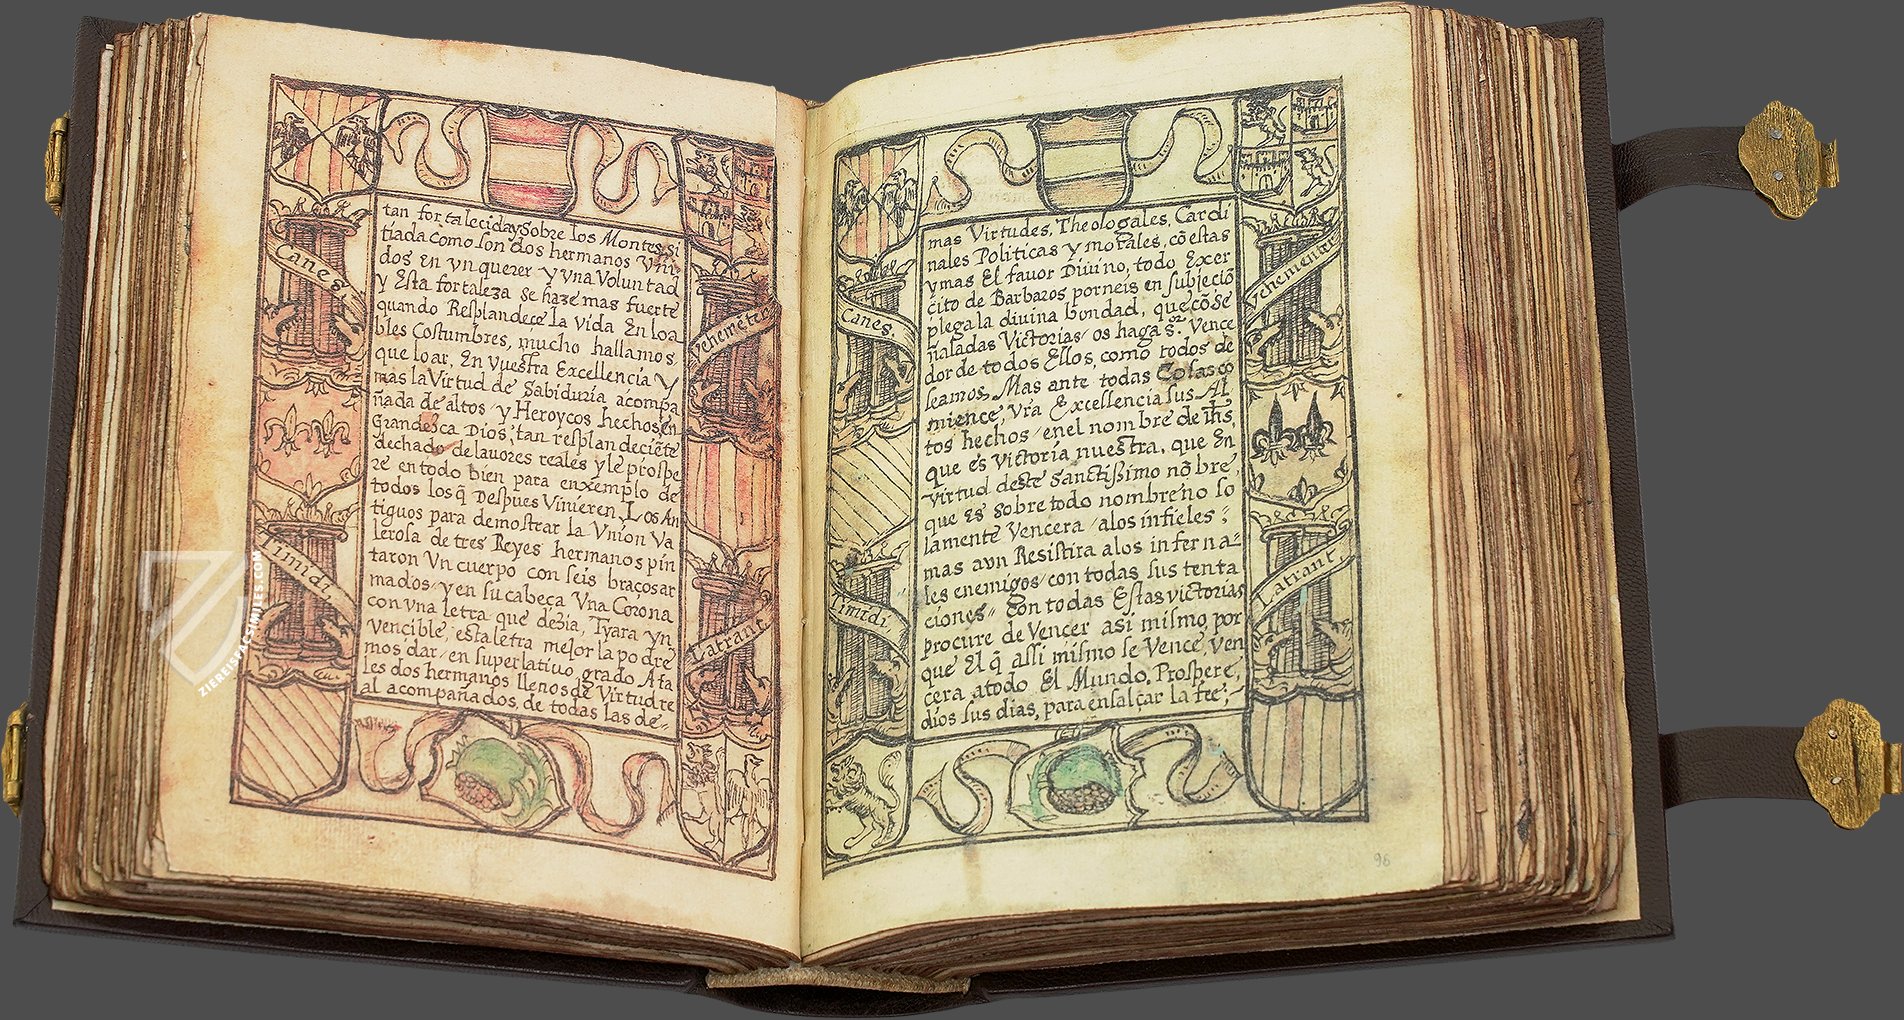 Canes
Timidi,
Vehemẽter
Latrant.
tan fortalecida y Sobre los Montes, si
tiada como son dos hermanos Vni
dos en vn querer y vna Voluntad
y Esta fortaleza se haze mas fuerte
quando Resplandece la Vida En loa
bles Costumbres, mucho hallamos,
que loar, En Vuestra Excellencia y
mas la Virtud de Sabiduria acompa
ñada de altos y Heroycos hechos, en
Grandezca Dios, tan resplandeciẽte
dechado de lauores reales y le prospe
re en todo bien para enxemplo de
todos los q̃ Despues Vinieren, Los An
tiguos para demostrar la Vnion Va
lerosa de tres Reyes hermanos pin
taron Vn cuerpo con seis braços ar
mados y en su cabeça Vna Corona
con vna letra que dezia, Tyara yn
vencible, esta letra mejor la podre
mos dar en superlatiuo grado A ta
les dos hermanos llenos de Virtud re
al acompañados, de todas las de-
Canes,
Timidi
Vehementer
Latrant.
mas Virtudes, Theologales, Cardi
nales Politicas y morales, cõ estas
y mas El fauor Diuino, todo Exer
çito de Barbaros porneis en subjeciõ
plega la diuina bondad, que cõ se
ñaladas Victorias os haga s.or Vence
dor de todos Ellos, como todos de
seamos, Mas ante todas Cosas co
mience, Vr̃a Excellencia sus Al
tos hechos en el nombre de ih̃s,
que es victoria nuestra, que En
virtud deste sanctissimo nõbre,
que Es sobre todo nombre no so
lamente Vencera alos infieles;
mas avn Resistira alos inferna-
les enemigos con todas sus tenta
ciones con todas Estas victorias
procure de Vencer asi mismo, por
que El q̃ assi mismo se Vence, ven
çera atodo El Mundo, Prospere,
dios sus dias, para ensalçar la fee;
96
ZIEREISFACSIMILES.COM